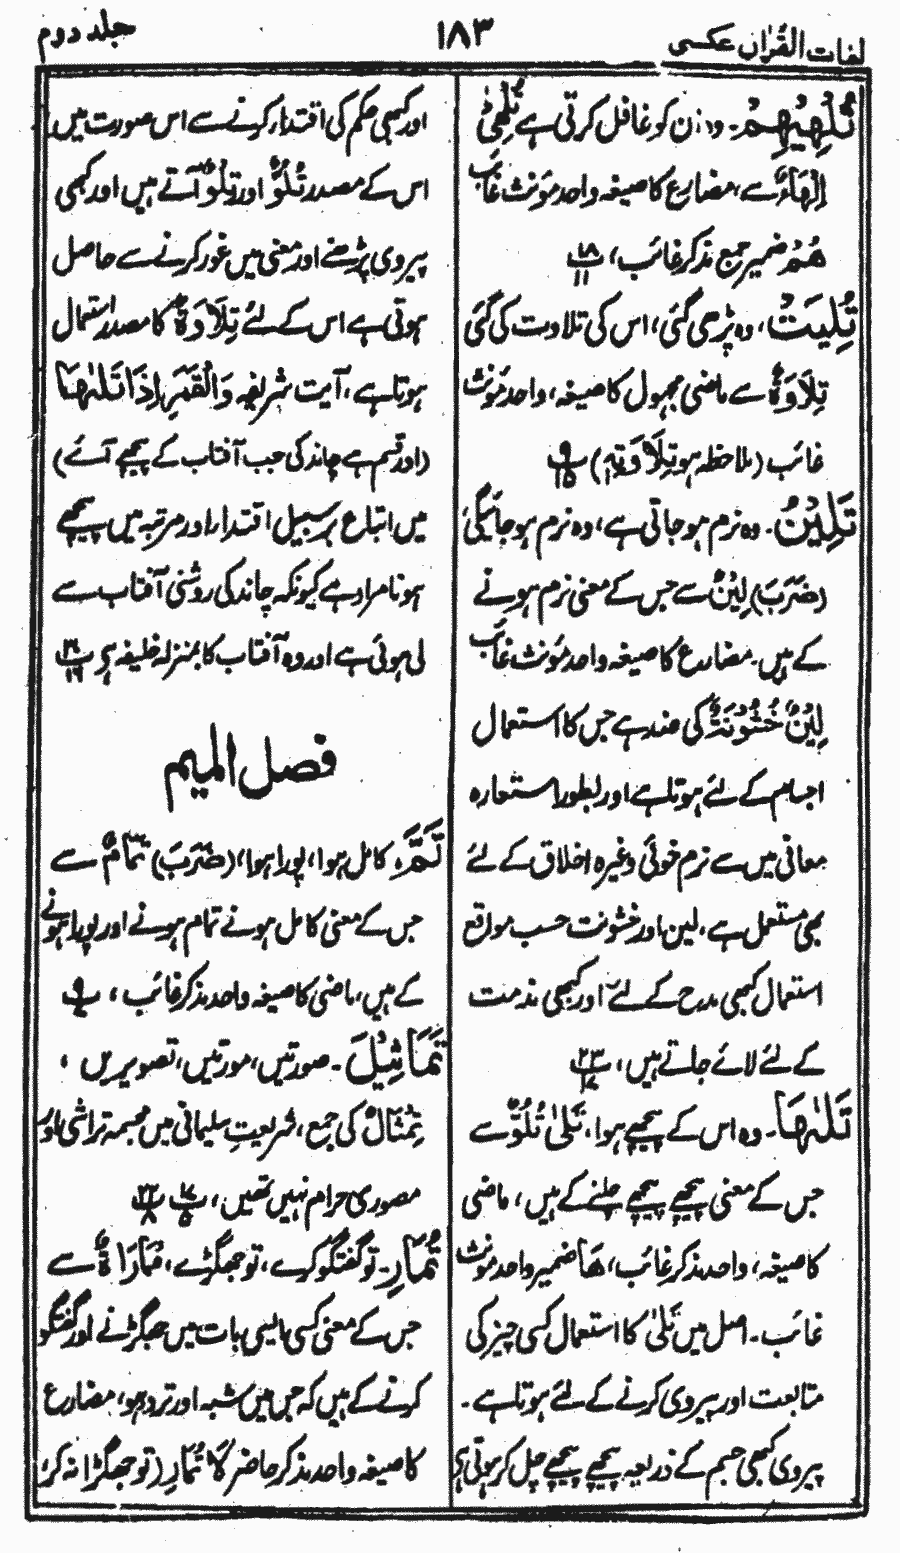 لغات القرآن عکسی
۱۸۳
جلد دوم
تُلْهِيْهِمْ۔ وہ ان کو غافل کرتی ہے تُلْهِیْ
اِلْهَاءٌ سے، مضارع کا صیغہ واحد مؤنث غائب
هُمْ ضمیر جمع مذکر غائب، ۱۸/۱۱
تُلِيَتْ، وہ پڑھی گئی، اس کی تلاوت کی گئی
تِلَاوَةٌ سے ماضی مجہول کا صیغہ، واحد مؤنث
غائب (ملاحظہ ہو تِلَاوَتِهٖ) ۹/۱۵
تَلِيْنُ۔ وہ نرم ہو جاتی ہے، وہ نرم ہو جائیگی،
(ضَرَبَ) لِيْنٌ سے جس کے معنی نرم ہونے
کے ہیں۔ مضارع کا صیغہ واحد مؤنث غائب
لِيْنٌ خُشُوْنَةٌ کی ضد ہے جس کا استعمال
اجسام کے لئے ہوتا ہے اور بطور استعارہ
معانی میں سے نرم خوئی وغیرہ اخلاق کے لئے
بھی مستعمل ہے، لین اور خشونت حسب مواقع
استعمال کبھی مدح کے لئے اور کبھی مذمت
کے لئے لائے جاتے ہیں، ۲۳/۱۷
تَلٰهَا۔ وہ اس کے پیچھے ہوا، تَلٰی تُلُوٌّ سے
جس کے معنی پیچھے پیچھے چلنے کے ہیں، ماضی
کا صیغہ، واحد مذکر غائب، هَا ضمیر واحد مؤنث
غائب۔ اصل میں تَلٰی کا استعمال کسی چیز کی
متابعت اور پیروی کرنے کے لئے ہوتا ہے۔
پیروی کبھی جسم کے ذریعہ پیچھے پیچھے چل کر ہوتی ہے
اور کبھی حکم کی اقتدار کرنے سے اس صورت میں
اس کے مصدر تُلُوٌّ اور تِلْوٌ آتے ہیں اور کبھی
پیروی پڑھنے اور معنی میں غور کرنے سے حاصل
ہوتی ہے اس کے لئے تِلَاوَةٌ کا مصدر استعمال
ہوتا ہے، آیت شریفہ وَالْقَمَرِ اِذَا تَلٰهَا
(اور قسم ہے چاند کی جب آفتاب کے پیچھے آئے)
میں اتباع برسبیل اقتدار اور مرتبہ میں پیچھے
ہونا مراد ہے کیونکہ چاند کی روشنی آفتاب سے
لی ہوئی ہے اور وہ آفتاب کا بمنزلہ خلیفہ ہے ۳۰/۱۶
فصل المیم
تَمَّ، کامل ہوا، پورا ہوا، (ضَرَبَ) تَمَامٌ سے
جس کے معنی کامل ہونے تمام ہونے اور پورا ہونے
کے ہیں، ماضی کا صیغہ واحد مذکر غائب،
تَمَاثِيْلَ۔ صورتیں، مورتیں، تصویریں،
تِمْثَالٌ کی جمع، شریعتِ سلیمانی میں مجسمہ تراشی اور
مصوری حرام نہیں تھیں، ۱۷/۵ ۲۲/۸
تُمَارِ۔ تو گفتگو کرے، تو جھگڑے، مُمَارَاةٌ سے
جس کے معنی کسی ایسی بات میں جھگڑنے اور گفتگو
کرنے کے ہیں کہ جس میں شبہ اور تردد ہو، مضارع
کا صیغہ واحد مذکر حاضر لَا تُمَارِ (تو جھگڑا نہ کر)